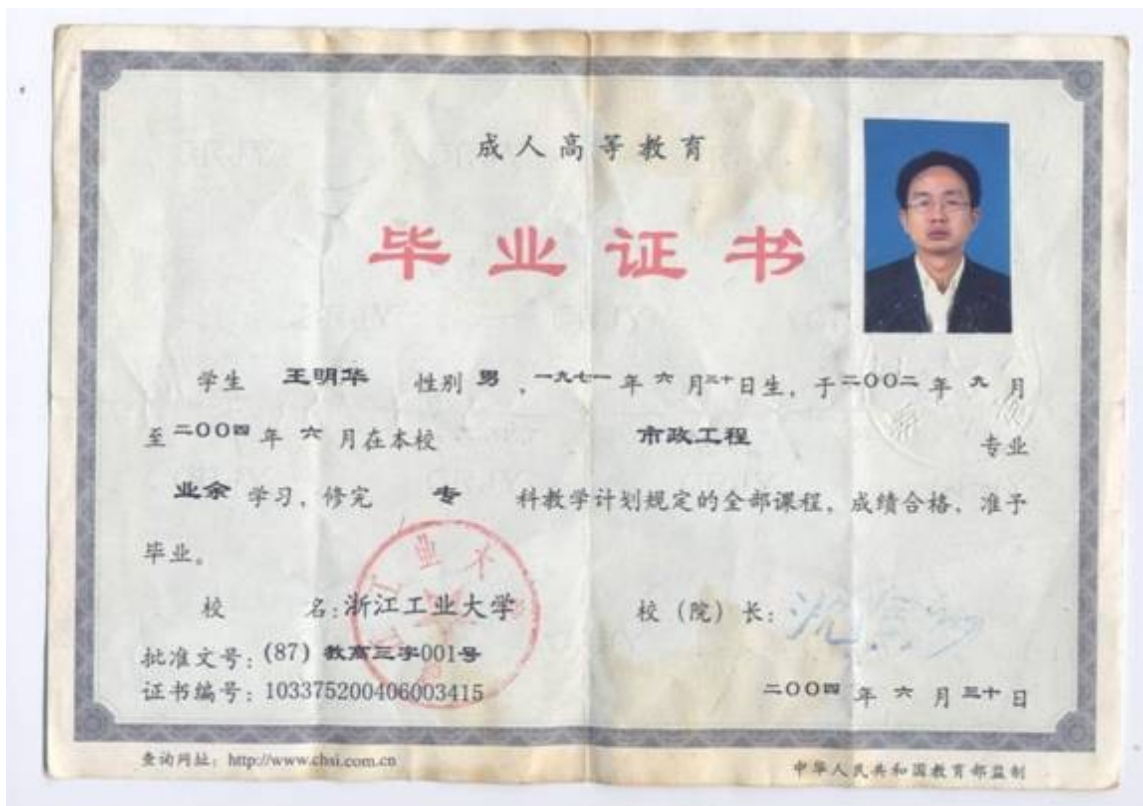 成人高等教育
毕业证书
学生 王明华 性别 男 , 一九七一 年 六 月 三十 日生, 于 二00二 年 九 月
至 二00四 年 六 月在本校 市政工程 专业
业余 学习, 修完 专 科教学计划规定的全部课程, 成绩合格, 准予
毕业。
校 名: 浙江工业大学 校 (院) 长:
批准文号: (87) 教高三字001号
证书编号: 103375200406003415 二00四 年 六 月 三十 日
查询网址: http://www.chsi.com.cn 中华人民共和国教育部监制